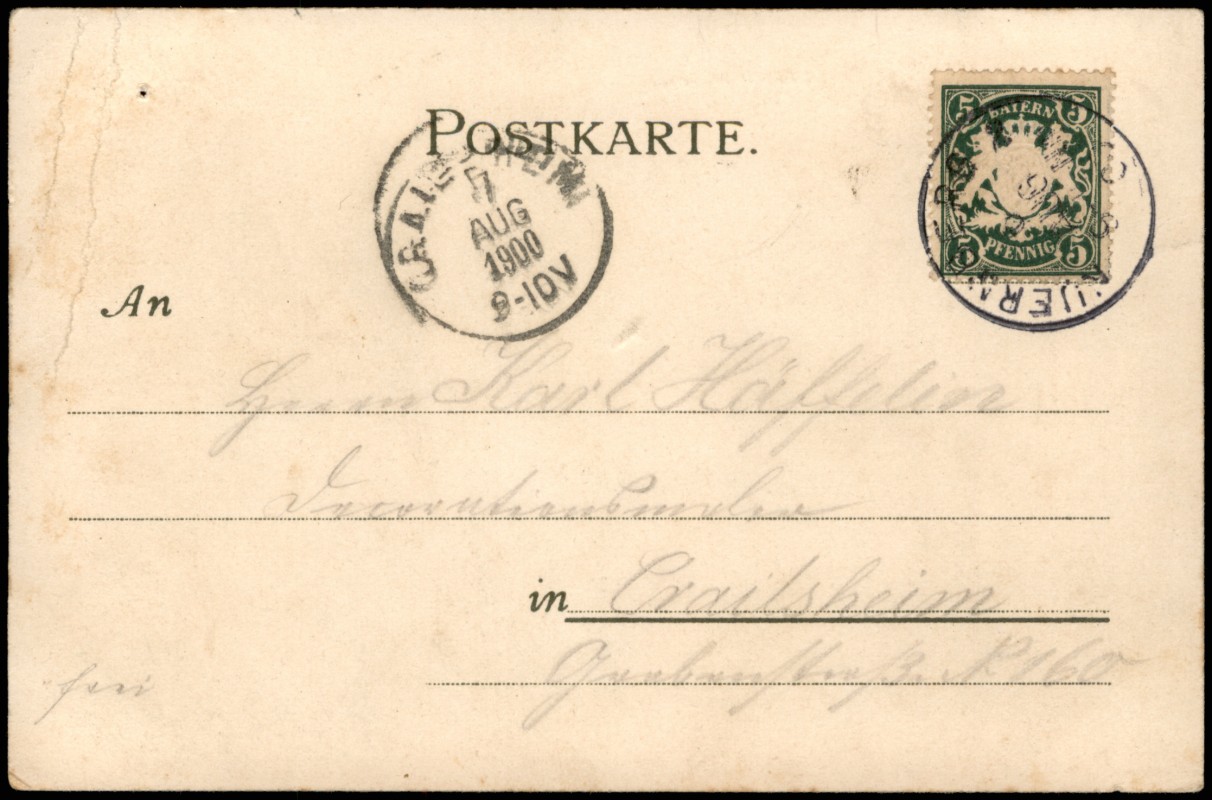 POSTKARTE.
5 BAYERN 5
5 PFENNIG 5
CRAILSHEIM
7
AUG
1900
9-10V
NUERNBERG
An
Herrn Karl Häffelin
Decorationsmaler
in Crailsheim
Grabenstraße No 160
frei